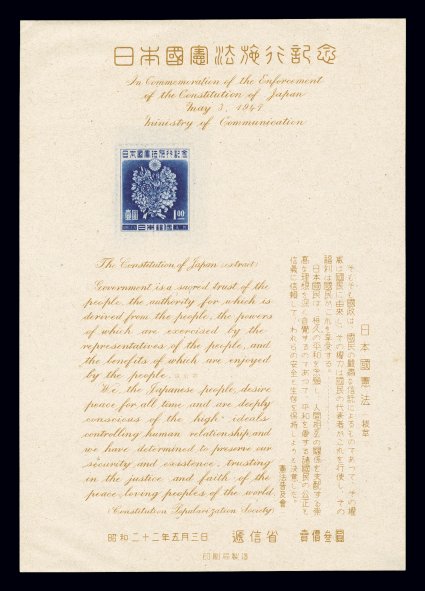 日本國憲法施行記念
In Commemoration of the Enforcement
of the Constitution of Japan
May 3, 1947
Ministry of Communication
日本國憲法施行記念
壹圓
1.00
日本郵便
The Constitution of Japan (extract)
Government is a sacred trust of the
people, the authority for which is
derived from the people, the powers
of which are exercised by the
representatives of the people, and
the benefits of which are enjoyed
by the people.
We, the Japanese people, desire
peace for all time and are deeply
conscious of the high ideals
controlling human relationship, and
we have determined to preserve our
security and existence, trusting
in the justice and faith of the
peace-loving peoples of the world.
(Constitution Popularization Society)
日本國憲法 抜萃
そもそも國政は、國民の嚴肅な信託によるものであって、その權
威は國民に由來し、その權力は國民の代表者がこれを行使し、その
福利は國民がこれを享受する。
日本國民は、恒久の平和を念願し、人間相互の關係を支配する崇
高な理想を深く自覺するのであって、平和を愛する諸國民の公正と
信義に信頼して、われらの安全と生存を保持しようと決意した。
憲法普及會
昭和二十二年五月三日 遞信省 壹價叁圓
印刷局製造